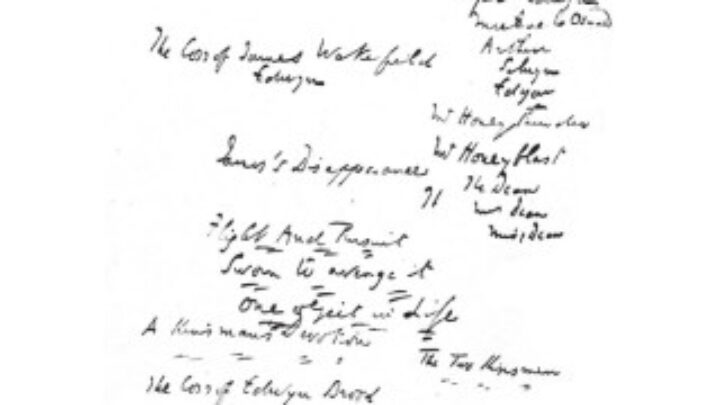 Michael or Oswald
The Loss of James Wakefield
Arthur
Edwyn
Selwyn
Edgar
Mr Honeythunder
Mr Honeyblast
James's Disappearance
The Dean
Mrs Dean
Miss Dean
Flight And Pursuit
Sworn to avenge it
One object in Life
A Kinsman's Devotion
The Two Kinsmen
The Loss of Edwyn Brood